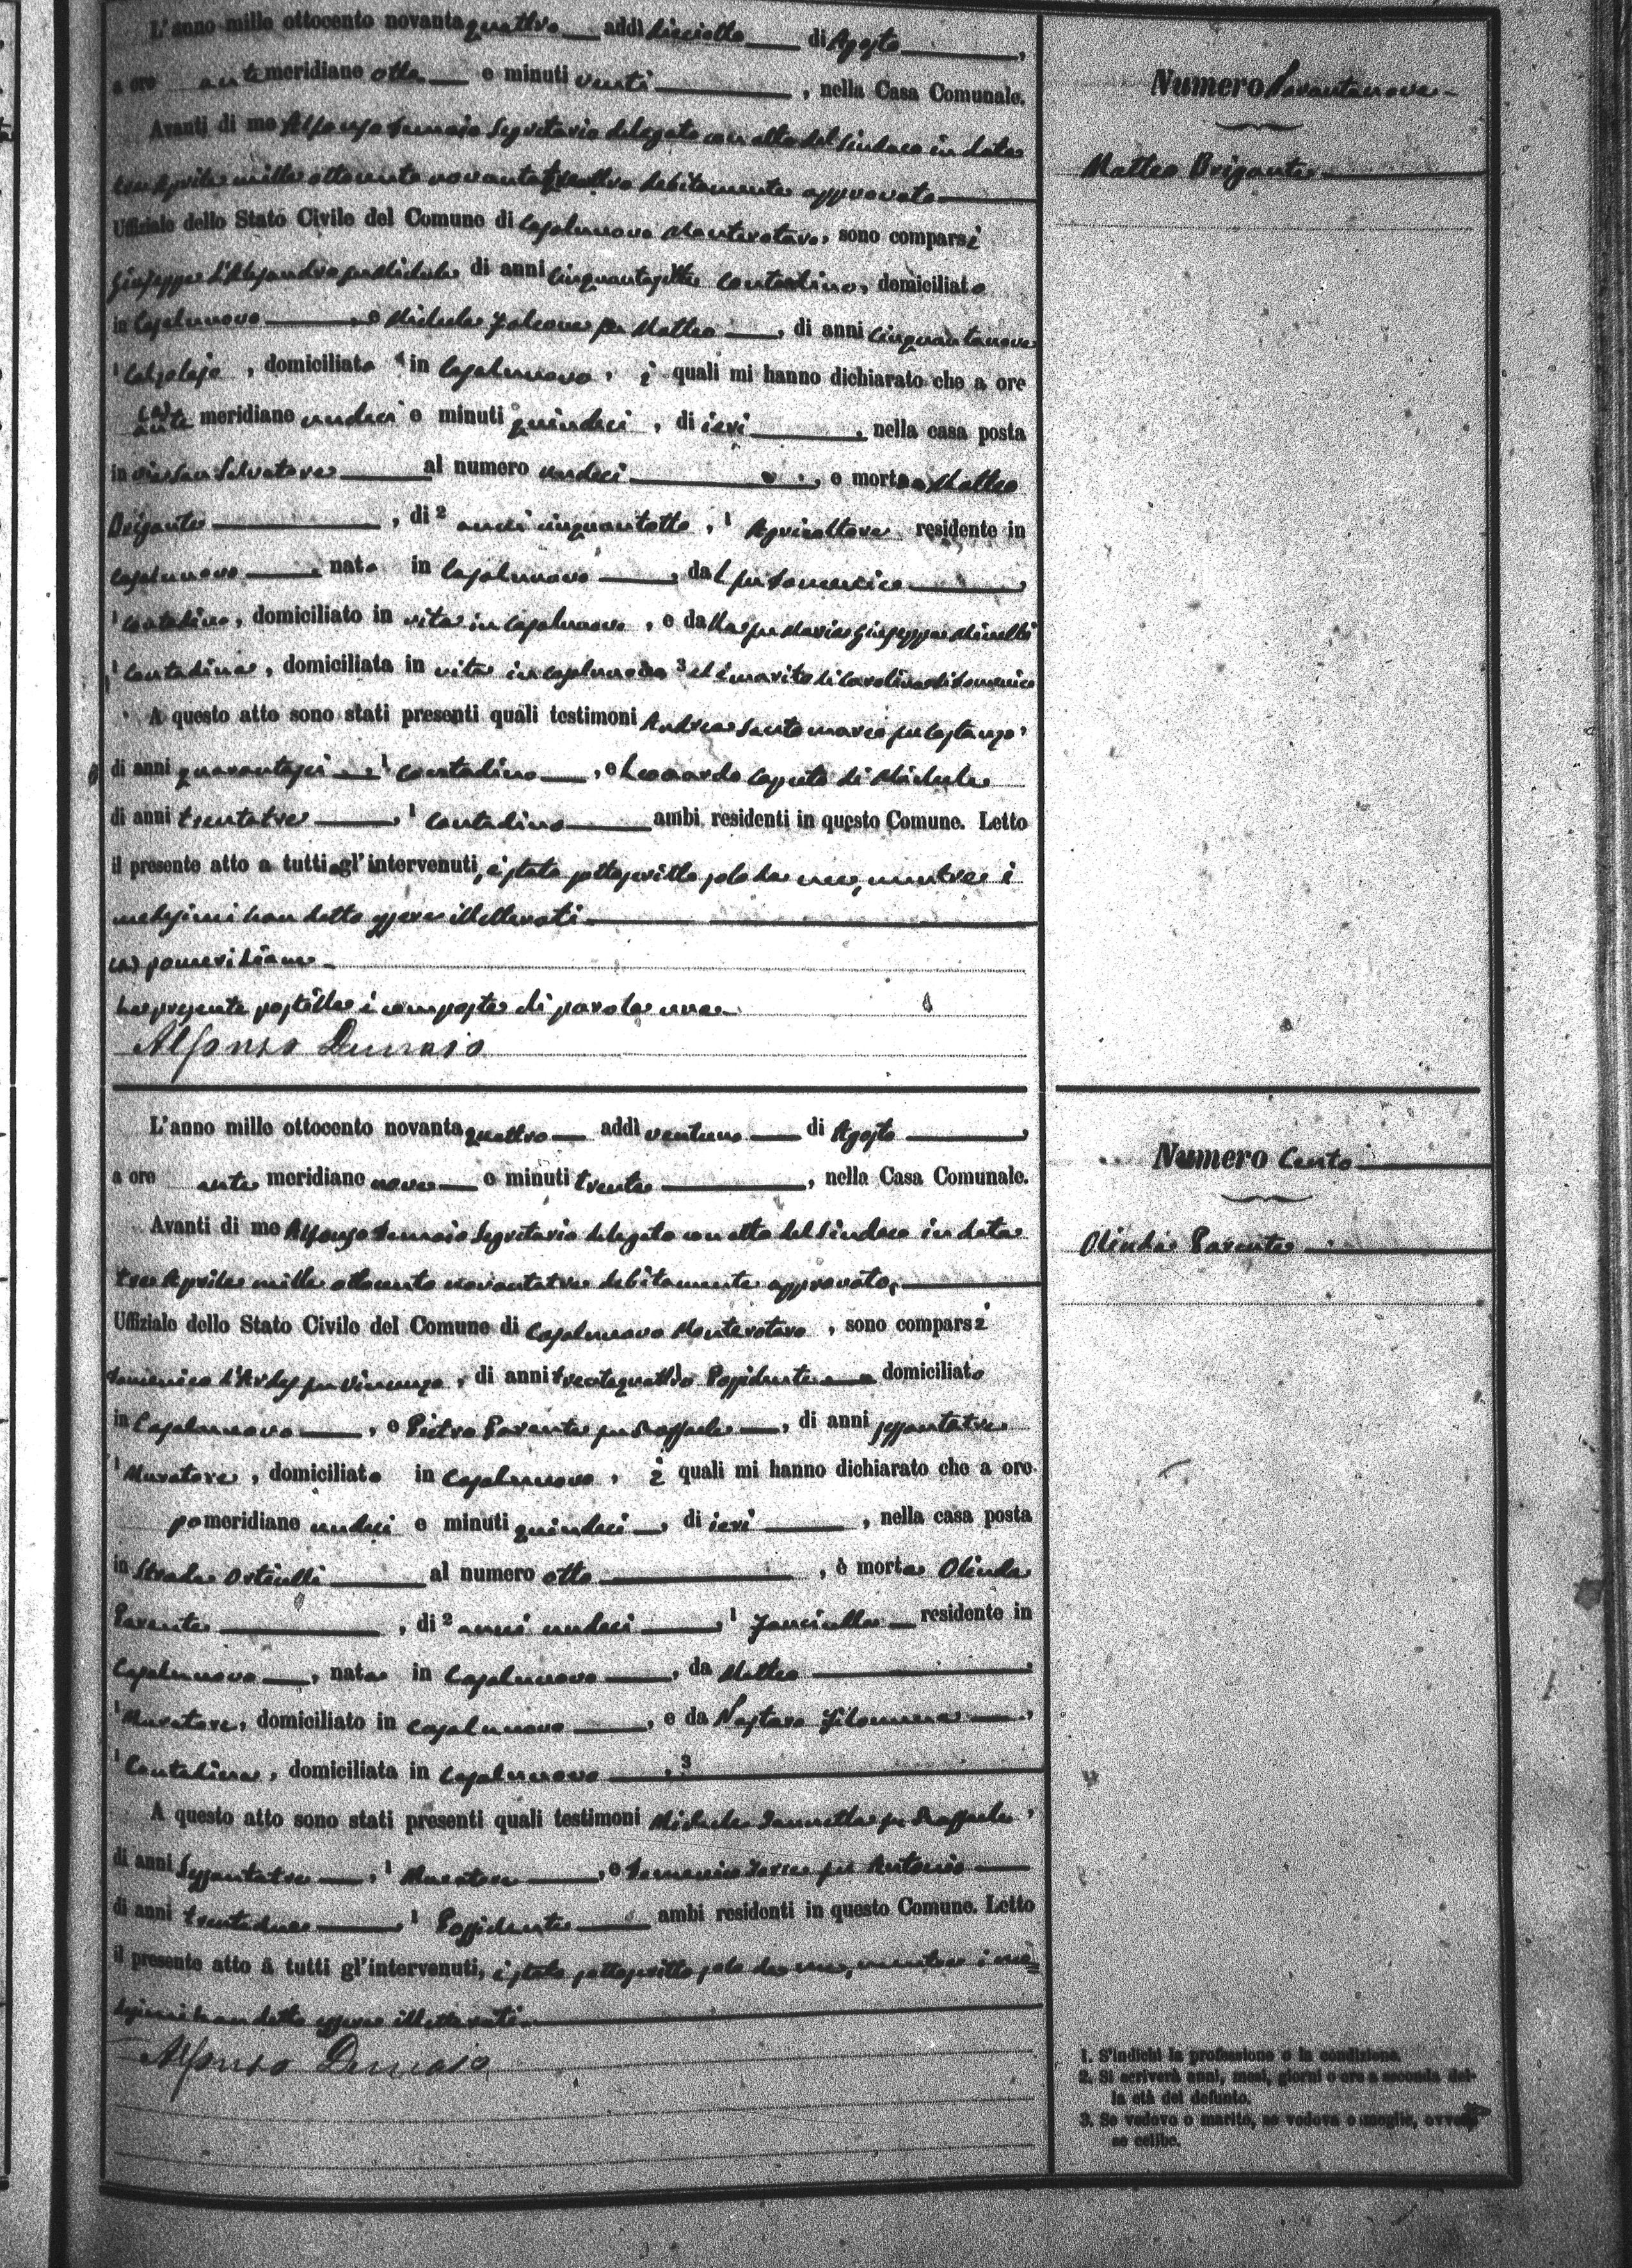 L'anno mille ottocento novantaquattro addì diciotto di Agosto,
a ore antemeridiane otto e minuti venti, nella Casa Comunale.
Avanti di me Alfonso Segretario delegato con atto del Sindaco in data
tre Aprile mille ottocento novantatre debitamente approvato
Uffiziale dello Stato Civile del Comune di Casalnuovo Monterotaro, sono comparsi
Giuseppe d'Alessandro fu Michele di anni cinquantasette contadino, domiciliato
in Casalnuovo, e Michele Falcone fu Matteo, di anni cinquantanove
1 Calzolajo, domiciliato in Casalnuovo, i quali mi hanno dichiarato che a ore
(a) ante meridiane undeci e minuti quindeci, di ieri, nella casa posta
in via San Salvatore al numero undeci, è morto Matteo
Brigante, di 2 anni cinquantotto, 1 Agricoltore residente in
Casalnuovo, nato in Casalnuovo, dal fu Domenico,
1 Contadino, domiciliato in vita in Casalnuovo, e dalla fu Maria Giuseppa Minelli
1 Contadina, domiciliata in vita in Casalnuovo 3 ed è marito di Carolina di Domenico
A questo atto sono stati presenti quali testimoni Andrea Santomarco fu Costanzo,
di anni quarantasei, 1 contadino, e Leonardo Caputo di Michele
di anni trentatre, 1 Contadino ambi residenti in questo Comune. Letto
il presente atto a tutti gl'intervenuti, è stato sottoscritto solo da me, mentre i
medesimi han detto essere illetterati
(a) pomeridiane
La presente postilla è composta di parola una
Alfonso
Numero Novantanove
Matteo Brigante
L'anno mille ottocento novantaquattro addì ventuno di Agosto,
a ore antemeridiane nove e minuti trenta, nella Casa Comunale.
Avanti di me Alfonso Segretario delegato con atto del Sindaco in data
tre Aprile mille ottocento novantatre debitamente approvato,
Uffiziale dello Stato Civile del Comune di Casalnuovo Monterotaro, sono comparsi
Domenico fu Vincenzo, di anni trentaquattro Possidente domiciliato
in Casalnuovo, e Pietro Parente fu Raffaele, di anni sessantatre
1 Muratore, domiciliato in Casalnuovo, i quali mi hanno dichiarato che a ore
pomeridiane undeci e minuti quindeci, di ieri, nella casa posta
in Strada Orticelli al numero otto, è morta Olinda
Parente, di 2 anni undeci, 1 fanciulla residente in
Casalnuovo, nata in Casalnuovo, da Matteo,
1 Muratore, domiciliato in Casalnuovo, e da Filomena,
1 Contadina, domiciliata in Casalnuovo, 3
A questo atto sono stati presenti quali testimoni Michele Iannella fu Raffaele,
di anni sessantatre, 1 Muratore, e Domenico fu Antonio
di anni trentadue, 1 Possidente ambi residenti in questo Comune. Letto
il presente atto a tutti gl'intervenuti, è stato sottoscritto solo da me, mentre i me=
desimi han detto essere illetterati
Alfonso
Numero Cento
Olinda Parente
1. S'indichi la professione o la condizione.
2. Si scriverà anni, mesi, giorni o ore a seconda del-
la età del defunto.
3. Se vedovo o marito, se vedova o moglie, ovvero
se celibe.